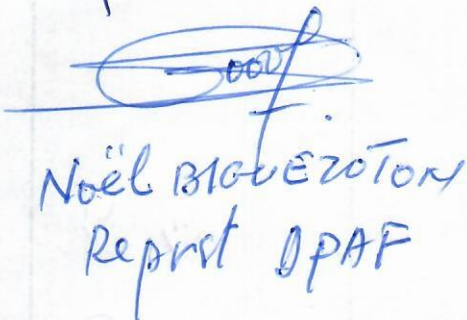 Noël BIGUEZOTON
Reprst DPAF